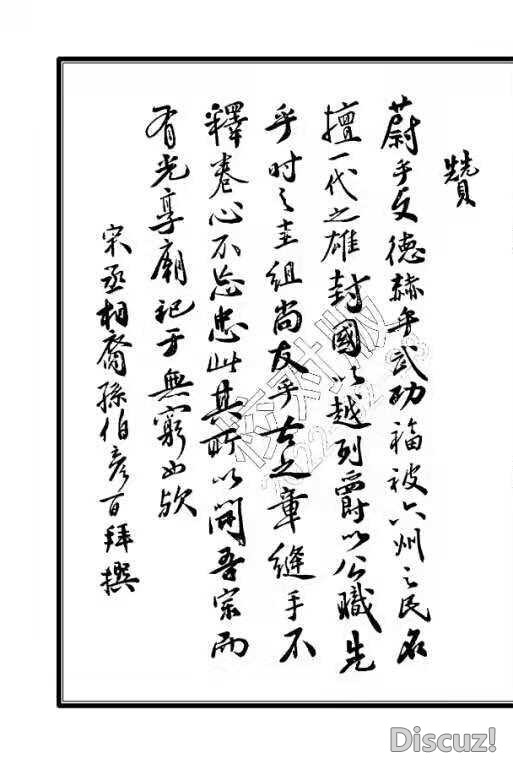 贊
蔚乎文德赫乎武功福被六州之民名
擅一代之雄封國以越列爵以公職先
乎時之圭組尚友乎古之章縫手不
釋卷心不忘忠此其所以開吾宗而
有光享廟祀于無窮也歟
宋丞相裔孫伯彥百拜撰
校对版
Discuz!